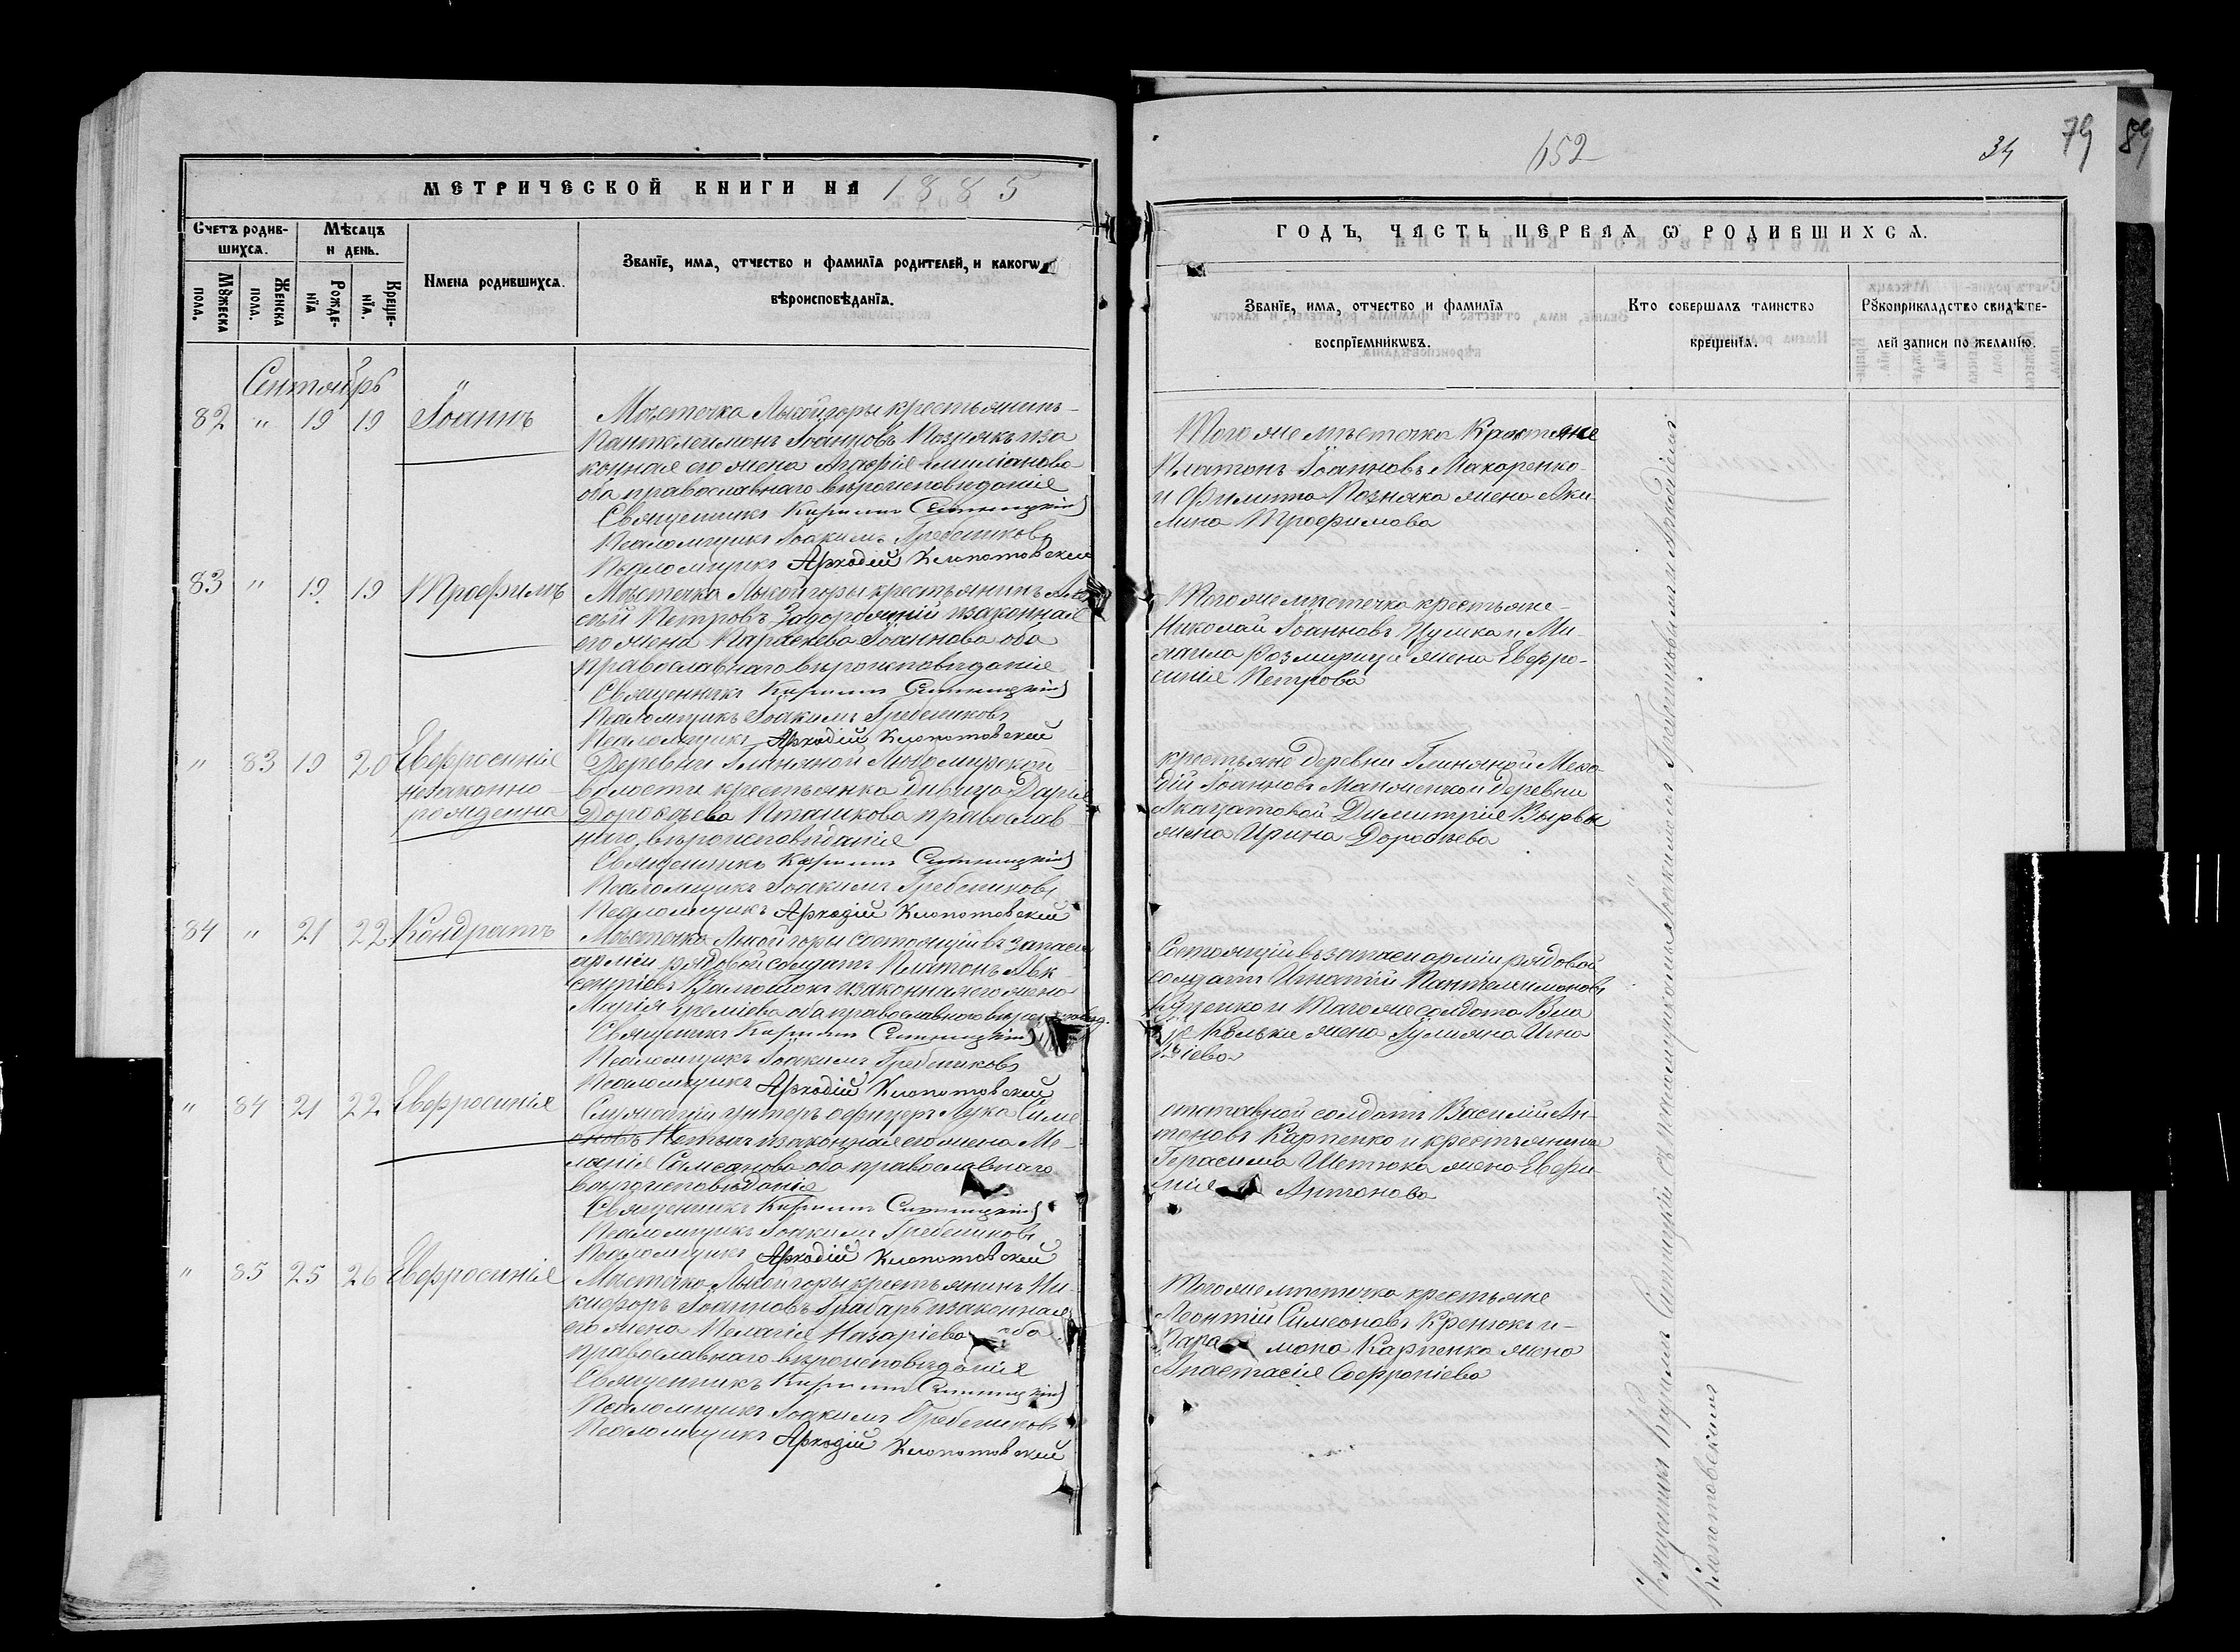 МЕТРИЧЕСКОЙ КНИГИ НА 1885
Счетъ родив-
шихся.
Мѣсяцъ
и день.
Имена родившихся.
Званїе, имя, отчество и фамилїя родителей, и какогѡ
вѣроисповѣданїя.
Мꙋжеска
пола.
Женска
пола.
Рожде-
нїя
Креще-
нїя.
Сентябрь
82 " 19 19 Іоаннъ
Мѣстечка Лысой горы крестьянинъ
Пантелеимонъ Іоанновъ Познякъ и за
конная его жена Агафія Емиліанова
оба православнаго вѣроисповѣданія
Священникъ Кириллъ Ситницкій
Псаломщикъ Іоакимъ Гребениковъ
Псаломщикъ Аркадій Клопотовскій
83 " 19 19 Трофимъ
Мѣстечка Лысой горы крестьянинъ Але
сѣй Петровъ Задорожній и законная
его жена Параскева Іоаннова оба
православнаго вѣроисповѣданія
Священникъ Кириллъ Ситницкій
Псаломщикъ Іоакимъ Гребениковъ
Псаломщикъ Аркадій Клопотовскій
" 83 19 20 Евфросинія
незаконно-
рожденна
Деревни Глиняной Любомирской
волости крестьянка дѣвица Дарія
Доробѣева Пташкова православ
наго вѣроисповѣданія
Священникъ Кириллъ Ситницкій
Псаломщикъ Іоакимъ Гребениковъ
Псаломщикъ Аркадій Клопотовскій
84 " 21 22 Кондратъ
Мѣстечка Лысой горы состоящій въ запасѣ
арміи рядовой солдатъ Платонъ Авк
сентіевъ и законная его жена
Марія Еремѣева оба православнаго вѣроисповѣд.
Священникъ Кириллъ Ситницкій
Псаломщикъ Іоакимъ Гребениковъ
Псаломщикъ Аркадій Клопотовскій
" 84 21 22 Евфросинія
Служащій унтеръ офицеръ Лука Симе
оновъ и законная его жена Ме-
ланія Симеонова оба православнаго
вѣроисповѣданія
Священникъ Кириллъ Ситницкій
Псаломщикъ Іоакимъ Гребениковъ
Псаломщикъ Аркадій Клопотовскій
" 85 25 26 Евфросинія
Мѣстечка Лысой горы крестьянинъ Ни-
кифоръ Іоанновъ Грабарь и законная
его жена Пелагія Назаріева оба
православнаго вѣроисповѣданія
Священникъ Кириллъ Ситницкій
Псаломщикъ Іоакимъ Гребениковъ
Псаломщикъ Аркадій Клопотовскій
652
34
79
89
ГОДЪ, ЧАСТЬ ПЕРВАЯ Ѡ РОДИВШИХСЯ.
Званїе, имя, отчество и фамилїя
воспрїемникѡвъ.
Кто совершалъ таинство
крещенїя.
Рꙋкоприкладство свидѣте-
лей записи по желанїю.
Того же мѣстечка Крестяне
Платонъ Іоанновъ Макаренко
и Филиппа Позняка жена Аки-
лина Трофимова
Того же мѣстечка крестьяне
Николай Іоанновъ Цулика и Ми-
хаила жена Евфро-
синія Петрова
крестьяне деревни Глиняной Мефо-
дій Іоанновъ деревни
Димитрія Вырвы
жена Ирина Доробѣева
Состоящій въ запасѣ арміи рядовой
солдатъ Игнатій Пантелеимоновъ
и Того же солдата Вла
жена Іуліяна Игна
тіева
отставной солдатъ Василій Ан-
тоновъ Карпенко и крестьянина
Герасима Шетюка жена Евфи
мія Антонова
Того же мѣстечка крестьяне
Леонтій Симеоновъ Кренюкъ и
Пара мона Карпенка жена
Анастасія Софроніева
Священникъ Кириллъ Ситницкій съ псаломщиками Іоакимомъ Гребениковымъ и Аркадіемъ
Клопотовскимъ